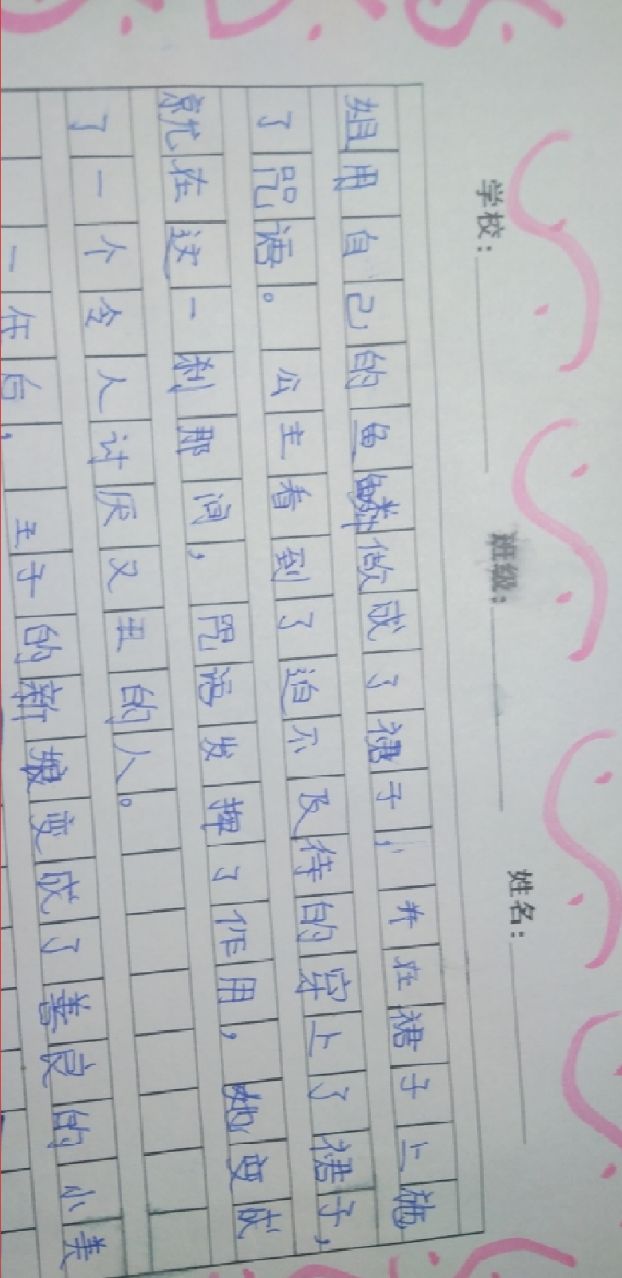 学校： 班级： 姓名：
姐用自己的鱼鳞做成了裙子，并在裙子上施
了咒语。公主看到了迫不及待的穿上了裙子，
就在这一刹那间，咒语发挥了作用，她变成
了一个令人讨厌又丑的人。
一年后，王子的新娘变成了善良的小美